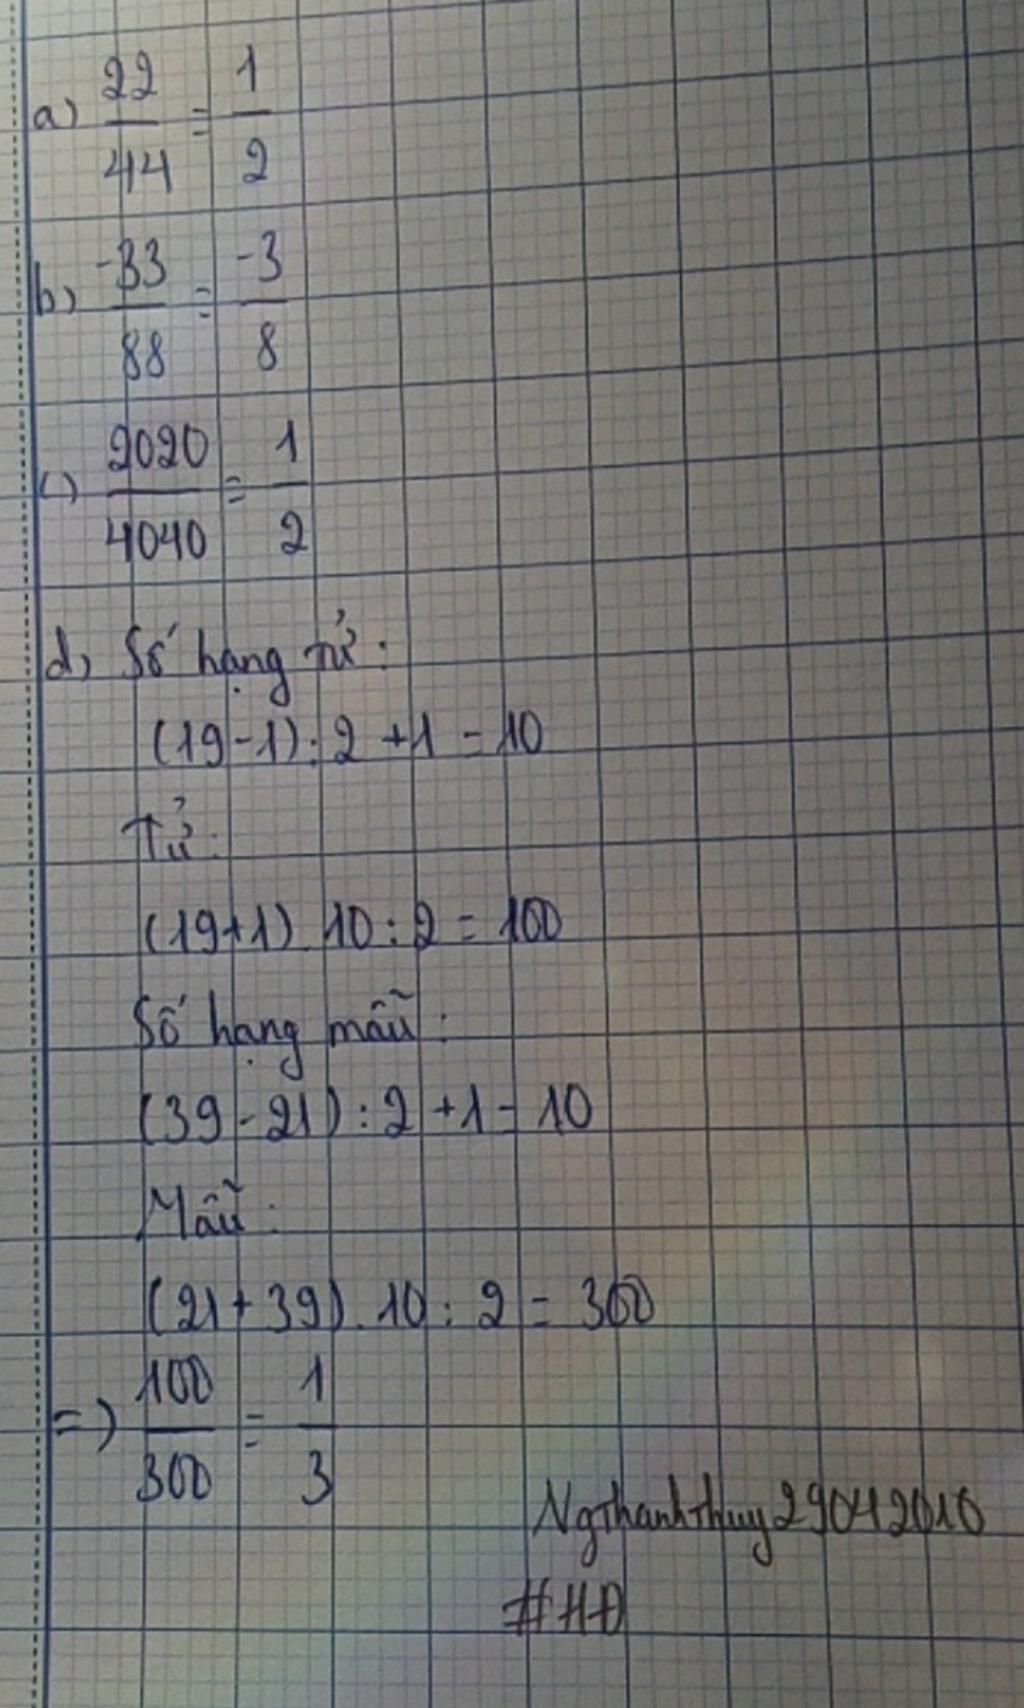 a) 22/44 = 1/2
b) -33/88 = -3/8
c) 2020/4040 = 1/2
d) Số hạng tử:
(19-1):2+1=10
Tử:
(19+1).10:2=100
Số hạng mẫu:
(39-21):2+1=10
Mẫu:
(21+39).10:2=300
=) 100/300 = 1/3
Ngthanhthuy29042010
#HĐ